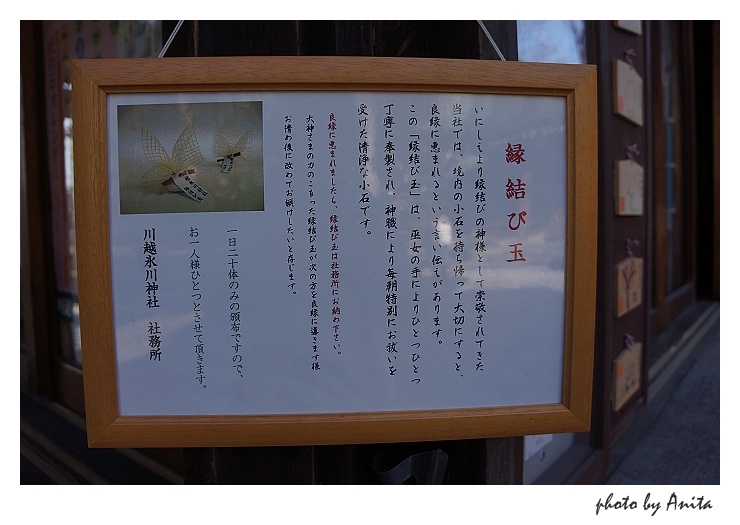 縁結び玉
いにしえより縁結びの神様として崇敬されてきた
当社では、境内の小石を持ち帰って大切にすると、
良縁に恵まれるという言い伝えがあります。
この「縁結び玉」は、巫女の手によりひとつひとつ
丁寧に奉製され、神職により毎朝特別にお祓いを
受けた清浄な小石です。
良縁に恵まれましたら、縁結び玉は社務所にお納め下さい。
大神さまの力のこもった縁結び玉が次の方を良縁に導きます様
お清め後に改めてお頒けしたいと存じます。
一日二十体のみの頒布ですので、
お一人様ひとつとさせて頂きます。
川越氷川神社 社務所
photo by Anita